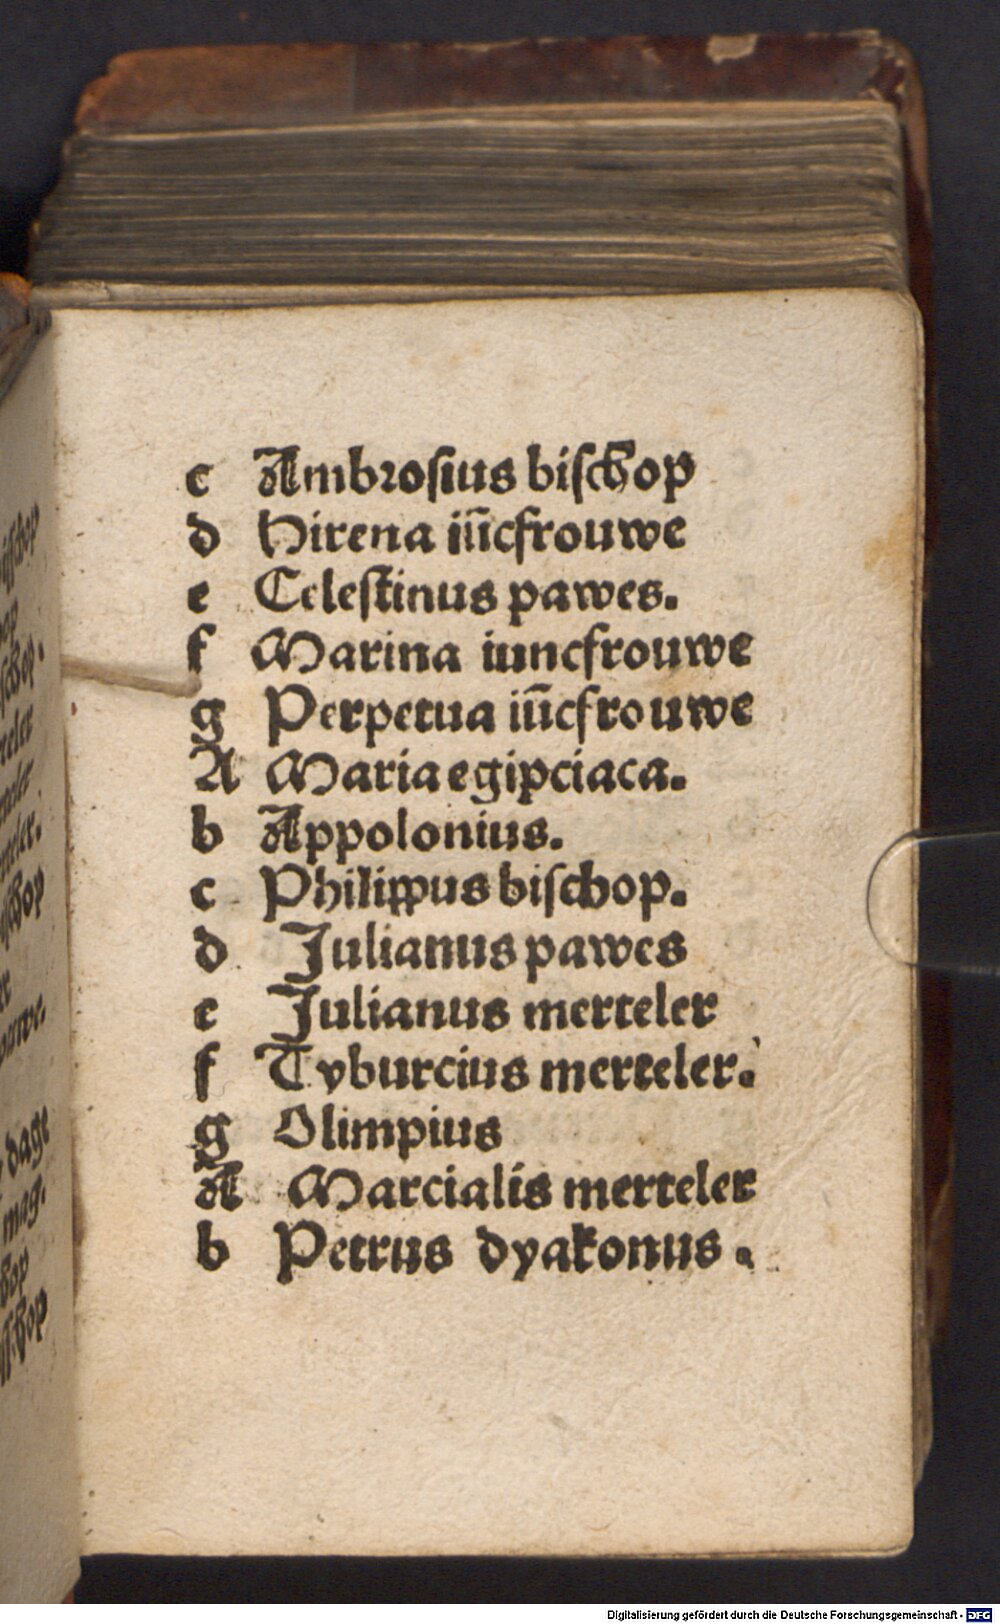 c Ambrosius bischop
d Hirena iūcfrouwe
e Celestinus pawes.
f Marina iuncfrouwe
g Perpetua iūcfrouwe
A Maria egipciaca.
b Appolonius.
c Philippus bischop.
d Julianus pawes
e Julianus merteler
f Tyburcius merteler.
g Olimpius
A Marcialis merteler
b Petrus dyakonus.
dage
mag.
Digitalisierung gefördert durch die Deutsche Forschungsgemeinschaft - DFG